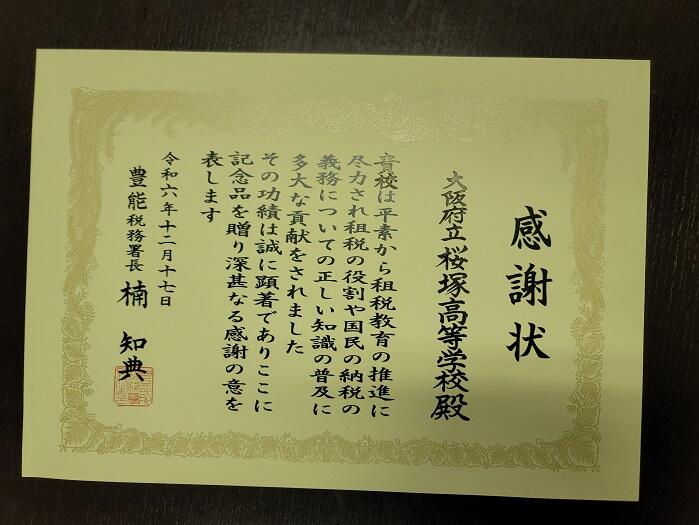 感謝状
大阪府立桜塚高等学校殿
貴校は平素から租税教育の推進に
尽力され租税の役割や国民の納税の
義務についての正しい知識の普及に
多大な貢献をされました
その功績は誠に顕著でありここに
記念品を贈り深甚なる感謝の意を
表します
令和六年十二月十七日
豊能税務署長 楠 知典